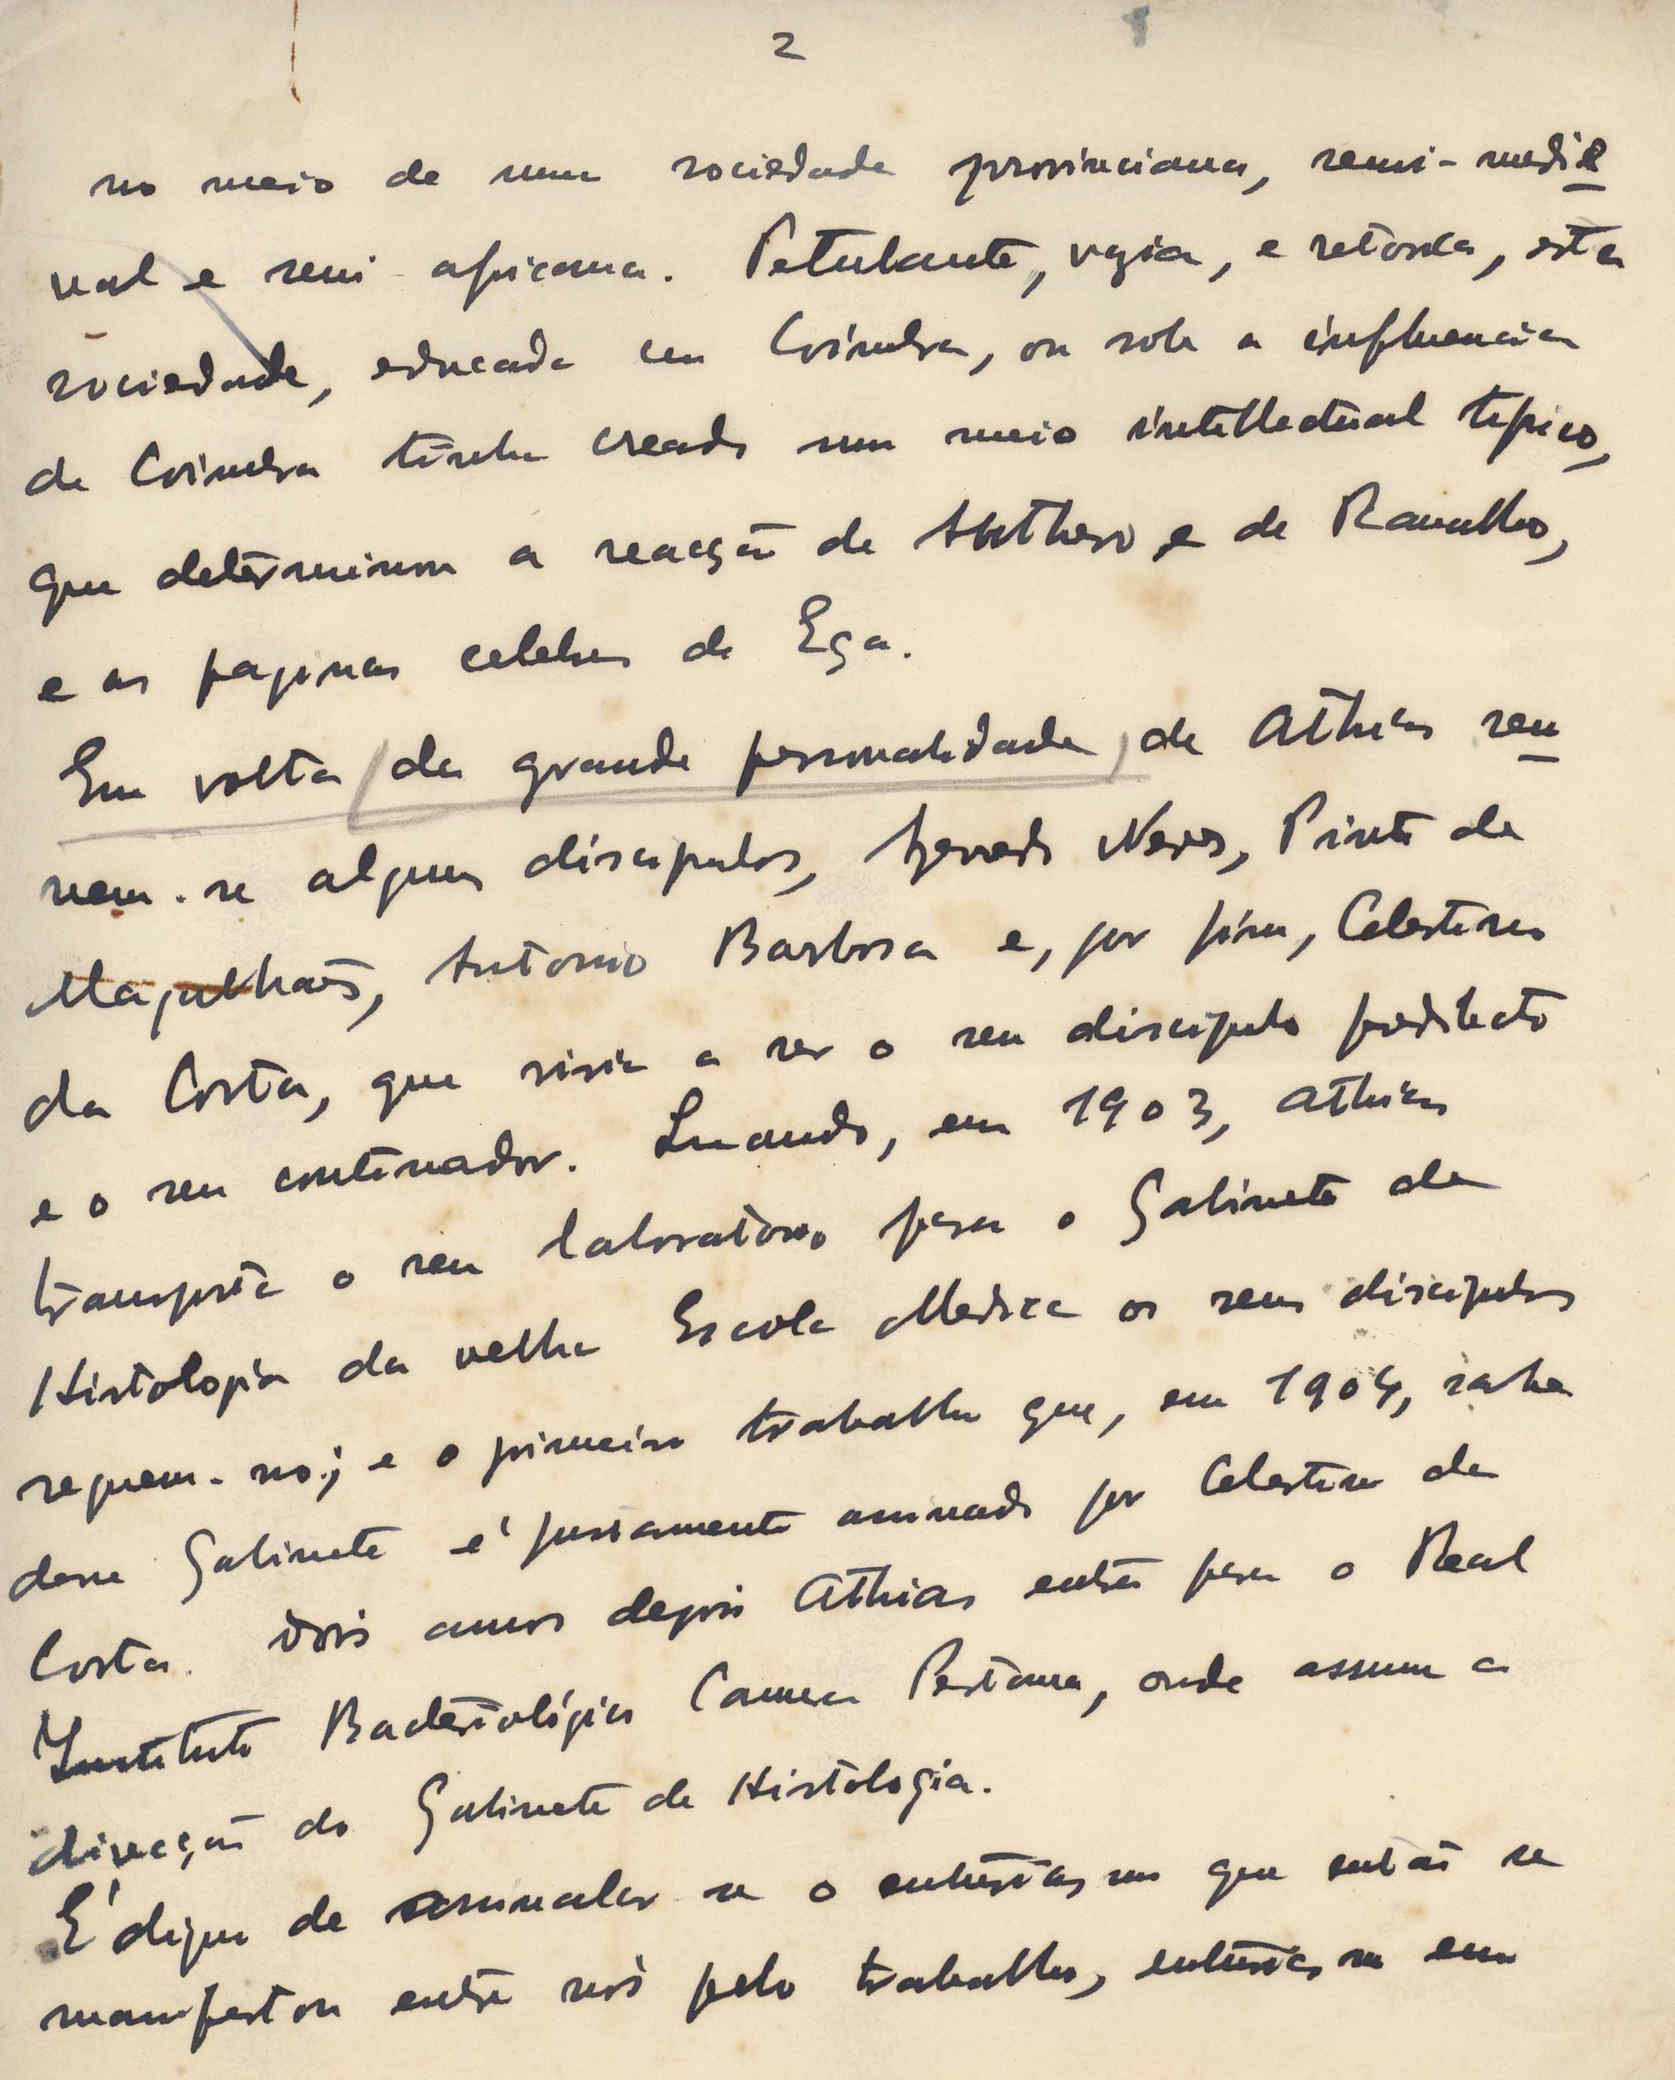 2
no meio de uma sociedade provinciana, semi-medie
val e semi africana. Petulante, vazia, e retorica, esta
sociedade, educada em Coimbra, ou sob a influencia
de Coimbra tinha creado um meio intellectual tipico,
que determinou a reacção de Anthero e de Ramalho,
e as paginas celebres de Eça.
Em volta da grande personalidade, de Athias reu
nem-se alguns discipulos, Azevedo Neves, Pinto de
Magalhães, Antonio Barbosa e, por fim, Celestino
da Costa, que viria a ser o seu discipulo predilecto
e o seu continuador. Quando, em 1903, Athias
transporta o seu laboratorio para o Gabinete de
Histologia da velha Escola Medica os seus discipulos
seguem-no; e o primeiro trabalho que, em 1904, sahe
desse Gabinete é justamente assinado por Celestino da
Costa. Dois annos depois Athias entra para o Real
Instituto Bacteriológico Camara Pestana, onde assume a
direcção do Gabinete de Histologia.
É digno de assinalar-se o entusiasmo que então se
manifestou entre nós pelo trabalho, entusiasmo em